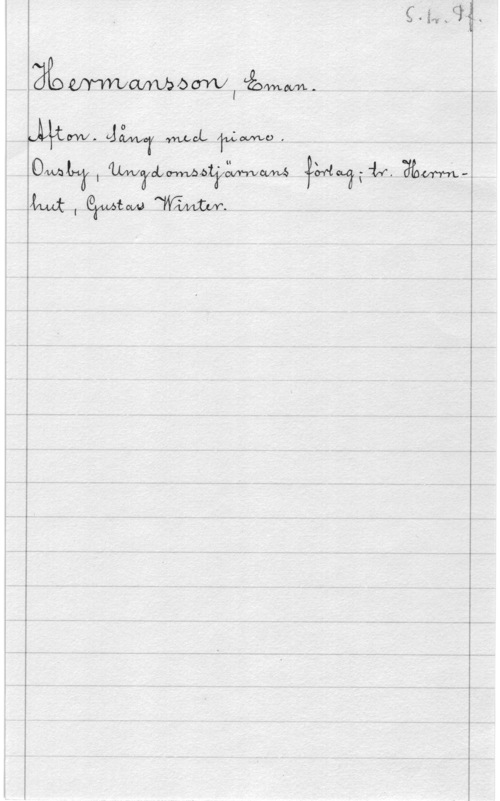 S. tr. 9f.
Hermansson, Eman.
Afton. Sång med piano.
Ousby, Ungdomsstjärnans förlag; tr. Herrn-
hut, Gustav Winter.